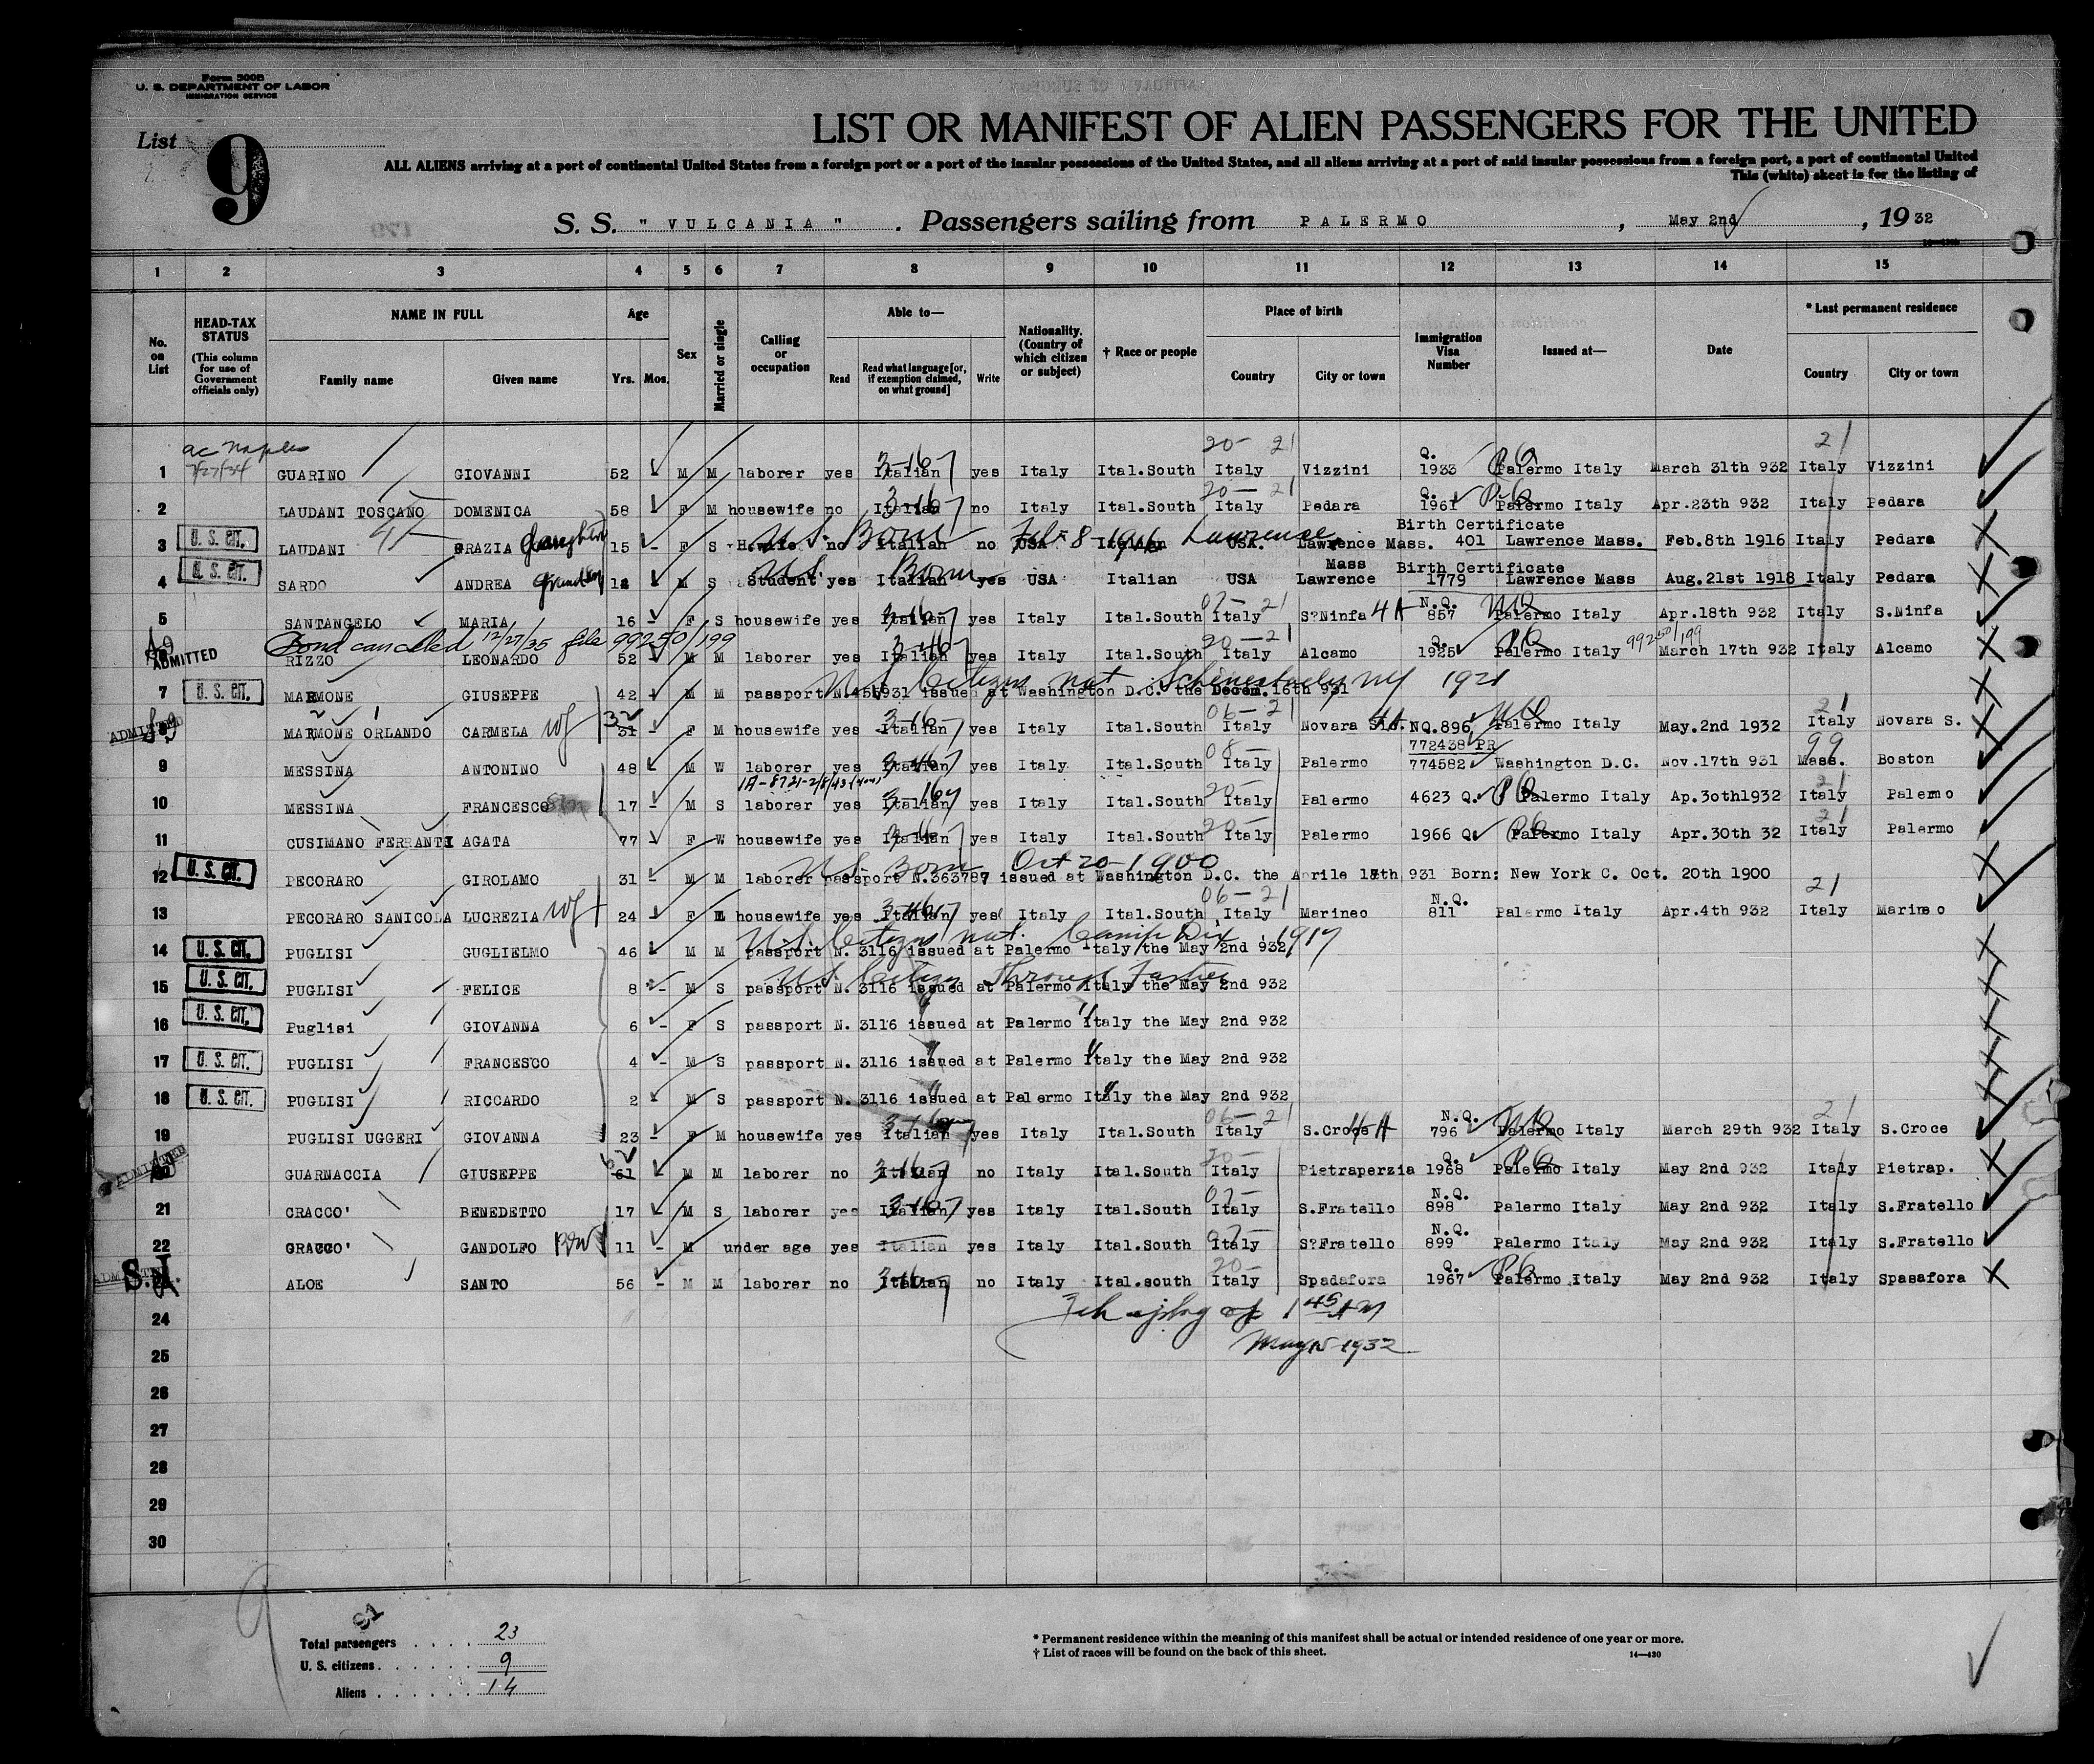 Form 500B
U. S. DEPARTMENT OF LABOR
IMMIGRATION SERVICE
List 9
LIST OR MANIFEST OF ALIEN PASSENGERS FOR THE UNITED
ALL ALIENS arriving at a port of continental United States from a foreign port or a port of the insular possessions of the United States, and all aliens arriving at a port of said insular possessions from a foreign port, a port of continental United
This (white) sheet is for the listing of
S. S. " VULCANIA " . Passengers sailing from PALERMO , May 2nd , 19 32
1 2 3 4 5 6 7 8 9 10 11 12 13 14 15
No. on List
HEAD-TAX STATUS (This column for use of Government officials only)
NAME IN FULL Family name Given name
Age Yrs. Mos.
Sex
Married or single
Calling or occupation
Able to— Read Read what language [or, if exemption claimed, on what ground] Write
Nationality. (Country of which citizen or subject)
† Race or people
Place of birth Country City or town
Immigration Visa Number
Issued at—
Date
* Last permanent residence Country City or town
ac Naples
20- 21 21
1 GUARINO GIOVANNI 52 M M laborer yes Italian yes Italy Ital.South Italy Vizzini Q. 1933 Palermo Italy March 31th 932 Italy Vizzini
20- 21
2 LAUDANI TOSCANO DOMENICA 58 F M housewife no Italian no Italy Ital.South Italy Pedara Q. 1961 Palermo Italy Apr.23th 932 Italy Pedara
U. S. Born Feb-8-1916 Lawrence
3 U. S. CIT. LAUDANI GRAZIA daughter 15 - F S H.wife no Italian no USA Italian USA. Lawrence Mass. Birth Certificate 401 Lawrence Mass. Feb.8th 1916 Italy Pedara
U.S. Born
4 U. S. CIT. SARDO ANDREA grandson M S Student yes Italian yes USA Italian USA Mass Lawrence Birth Certificate 1779 Lawrence Mass Aug.21st 1918 Italy Pedara
5 SANTANGELO MARIA 16 - F S housewife yes Italian yes Italy Ital.South Italy S?Ninfa 4A N.Q. 857 Palermo Italy Apr.18th 932 Italy S.Ninfa
Bond cancelled 12/27/35 file 99250/199
ADMITTED RIZZO LEONARDO 52 M M laborer yes Italian yes Italy Ital.South Italy Alcamo Q. 1925 Palermo Italy 99250/199 March 17th 932 Italy Alcamo
U S Citizen nat Schenectady NY 1921
7 U. S. CIT. MARMONE GIUSEPPE 42 M M passport N.455931 issued at Washington D.C. the Decem.16th 931
8 ADMITTED MARMONE ORLANDO CARMELA wf 32 31 - F M housewife yes Italian yes Italy Ital.South Italy Novara Sic. NQ.896 Palermo Italy May.2nd 1932 Italy Novara S.
772438 PR 99
9 MESSINA ANTONINO 48 M W laborer yes Italian yes Italy Ital.South Italy Palermo 774582 Washington D.C. Nov.17th 931 Mass. Boston
10 MESSINA FRANCESCO 17 - M S laborer yes Italian yes Italy Ital.South Italy Palermo 4623 Q. Palermo Italy Ap.3oth1932 Italy Palermo
11 CUSIMANO FERRANTI AGATA 77 F W housewife yes Italian yes Italy Ital.South Italy Palermo 1966 Q. Palermo Italy Apr.30th 32 Italy Palermo
U S Born Oct 20-1900
12 U. S. CIT. PECORARO GIROLAMO 31 - M M laborer passport N.363787 issued at Washington D.C. the Aprile 931 Born: New York C. Oct. 20th 1900
06-21 21
13 PECORARO SANICOLA LUCREZIA wf 24 F housewife yes Italian yes Italy Ital.South Italy Marineo N.Q. 811 Palermo Italy Apr.4th 932 Italy Marineo
U.S. Citizen nat. Camp Dix 1917
14 U. S. CIT. PUGLISI GUGLIELMO 46 M M passport N. 3116 issued at Palermo Italy the May 2nd 932
U S Citizen Through Father
15 U. S. CIT. PUGLISI FELICE 8 - M S passport N. 3116 issued at Palermo Italy the May 2nd 932
16 U. S. CIT. Puglisi GIOVANNA 6 - F S passport N. 3116 issued at Palermo Italy the May 2nd 932
17 U. S. CIT. PUGLISI FRANCESCO 4 - M S passport N. 3116 issued at Palermo Italy the May 2nd 932
18 U. S. CIT. PUGLISI RICCARDO 2 M S passport N. 3116 issued at Palermo Italy the May 2nd 932
06-21 21
19 PUGLISI UGGERI GIOVANNA 23 - F M housewife yes Italian yes Italy Ital.South Italy S.Croce 4A N.Q. 796 Palermo Italy March 29th 932 Italy S.Croce
20 ADMITTED GUARNACCIA GIUSEPPE 61 M M laborer no Italian no Italy Ital.South Italy Pietraperzia Q. 1968 Palermo Italy May 2nd 932 Italy Pietrap.
21 CRACCO' BENEDETTO 17 - M S laborer yes Italian yes Italy Ital.South Italy S.Fratello N.Q. 898 Palermo Italy May 2nd 932 Italy S.Fratello
22 CRACCO' GANDOLFO Bro 11 - M under age yes Italian yes Italy Ital.South Italy S?Fratello N.Q. 899 Palermo Italy May 2nd 932 Italy S.Fratello
S.I. ALOE SANTO 56 - M M laborer no Italian no Italy Ital.south Italy Spadafora Q. 1967 Palermo Italy May 2nd 932 Italy Spasafora
24 1 45 AM
25 May 1932
26
27
28
29
30
9
Total passengers . . . . 23
U. S. citizens . . . . . . 9
Aliens . . . . . . 14
* Permanent residence within the meaning of this manifest shall be actual or intended residence of one year or more.
† List of races will be found on the back of this sheet. 14—430